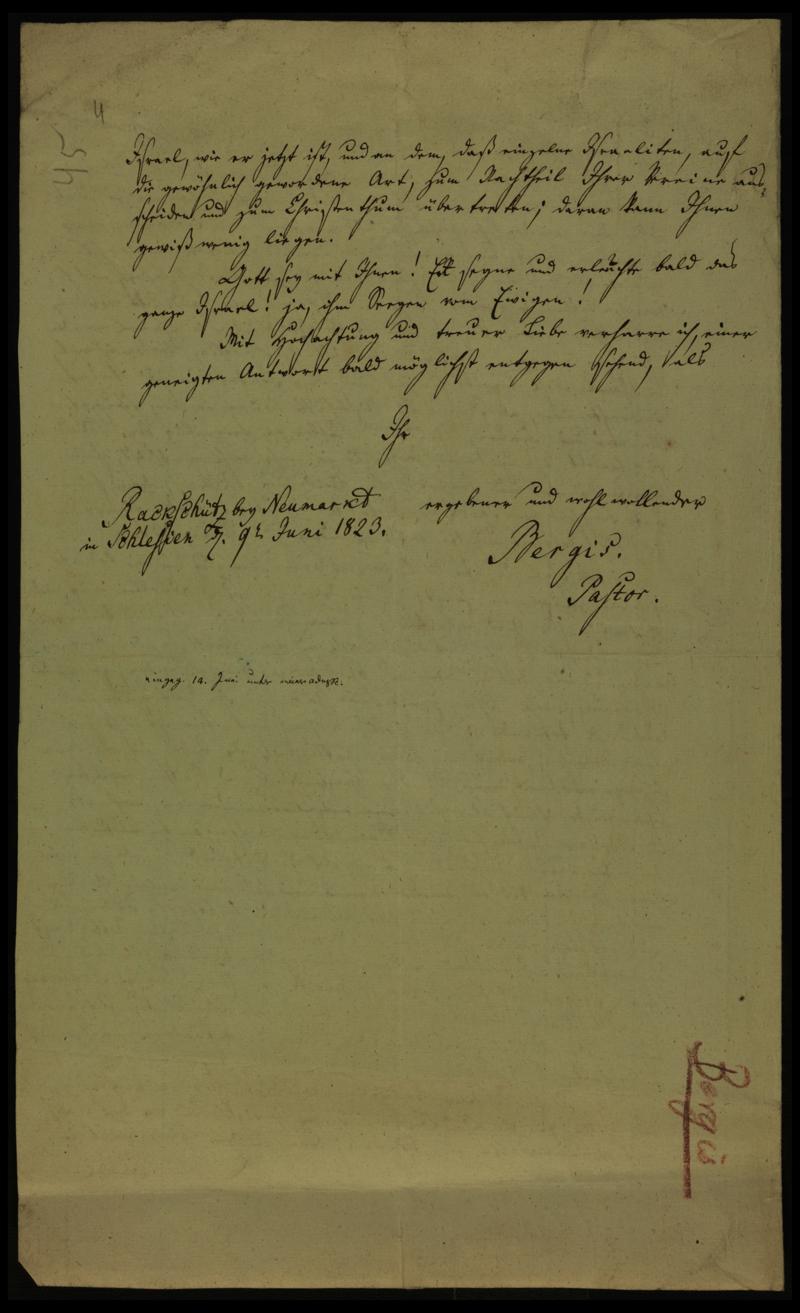 4
45
Israel, wie er jetzt ist, und an dem, daß einzelne Israeliten, auf
die gewöhnlich gewordene Art, zum Nachtheil Ihrer Vereine aus-
scheiden und zum Christenthum übertretten; daran kann Ihnen
gewiß wenig liegen.
Gott sey mit Ihnen! Er segne und erleuchte bald das
ganze Israel! ja, ihm Seegen vom Ewigen!
Mit Hochachtung und treuer Liebe verharre ich, einer
geneigten Antwort bald möglichst entgegen sehend, als
Ihr
ergebener und wohlwollender
Bergis.
Pastor.
Rackschütz bey Neumarkt
in Schlesien d. 9t Juni 1823.
eingeg. 14. Juni unter
Bergis